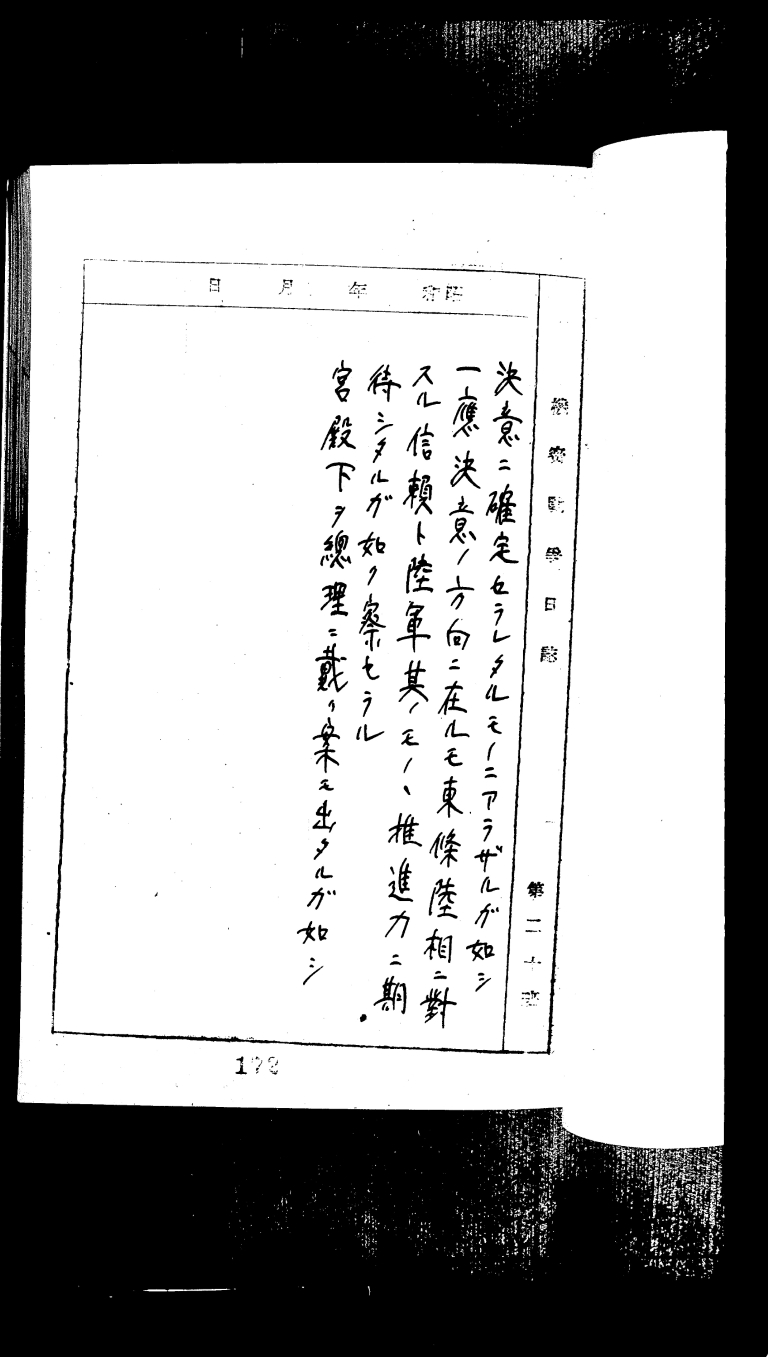 機密戰爭日誌
第二十
昭和 年 月 日
決意ニ確定セラレタルモノニアラザルガ如シ
一應決意ノ方向ニ在ルモ東條陸相ニ對
スル信頼ト陸軍其ノモノヽ推進力ニ期
待シタルガ如ク察セラル
宮殿下ヲ總理ニ戴ク案モ出タルガ如シ